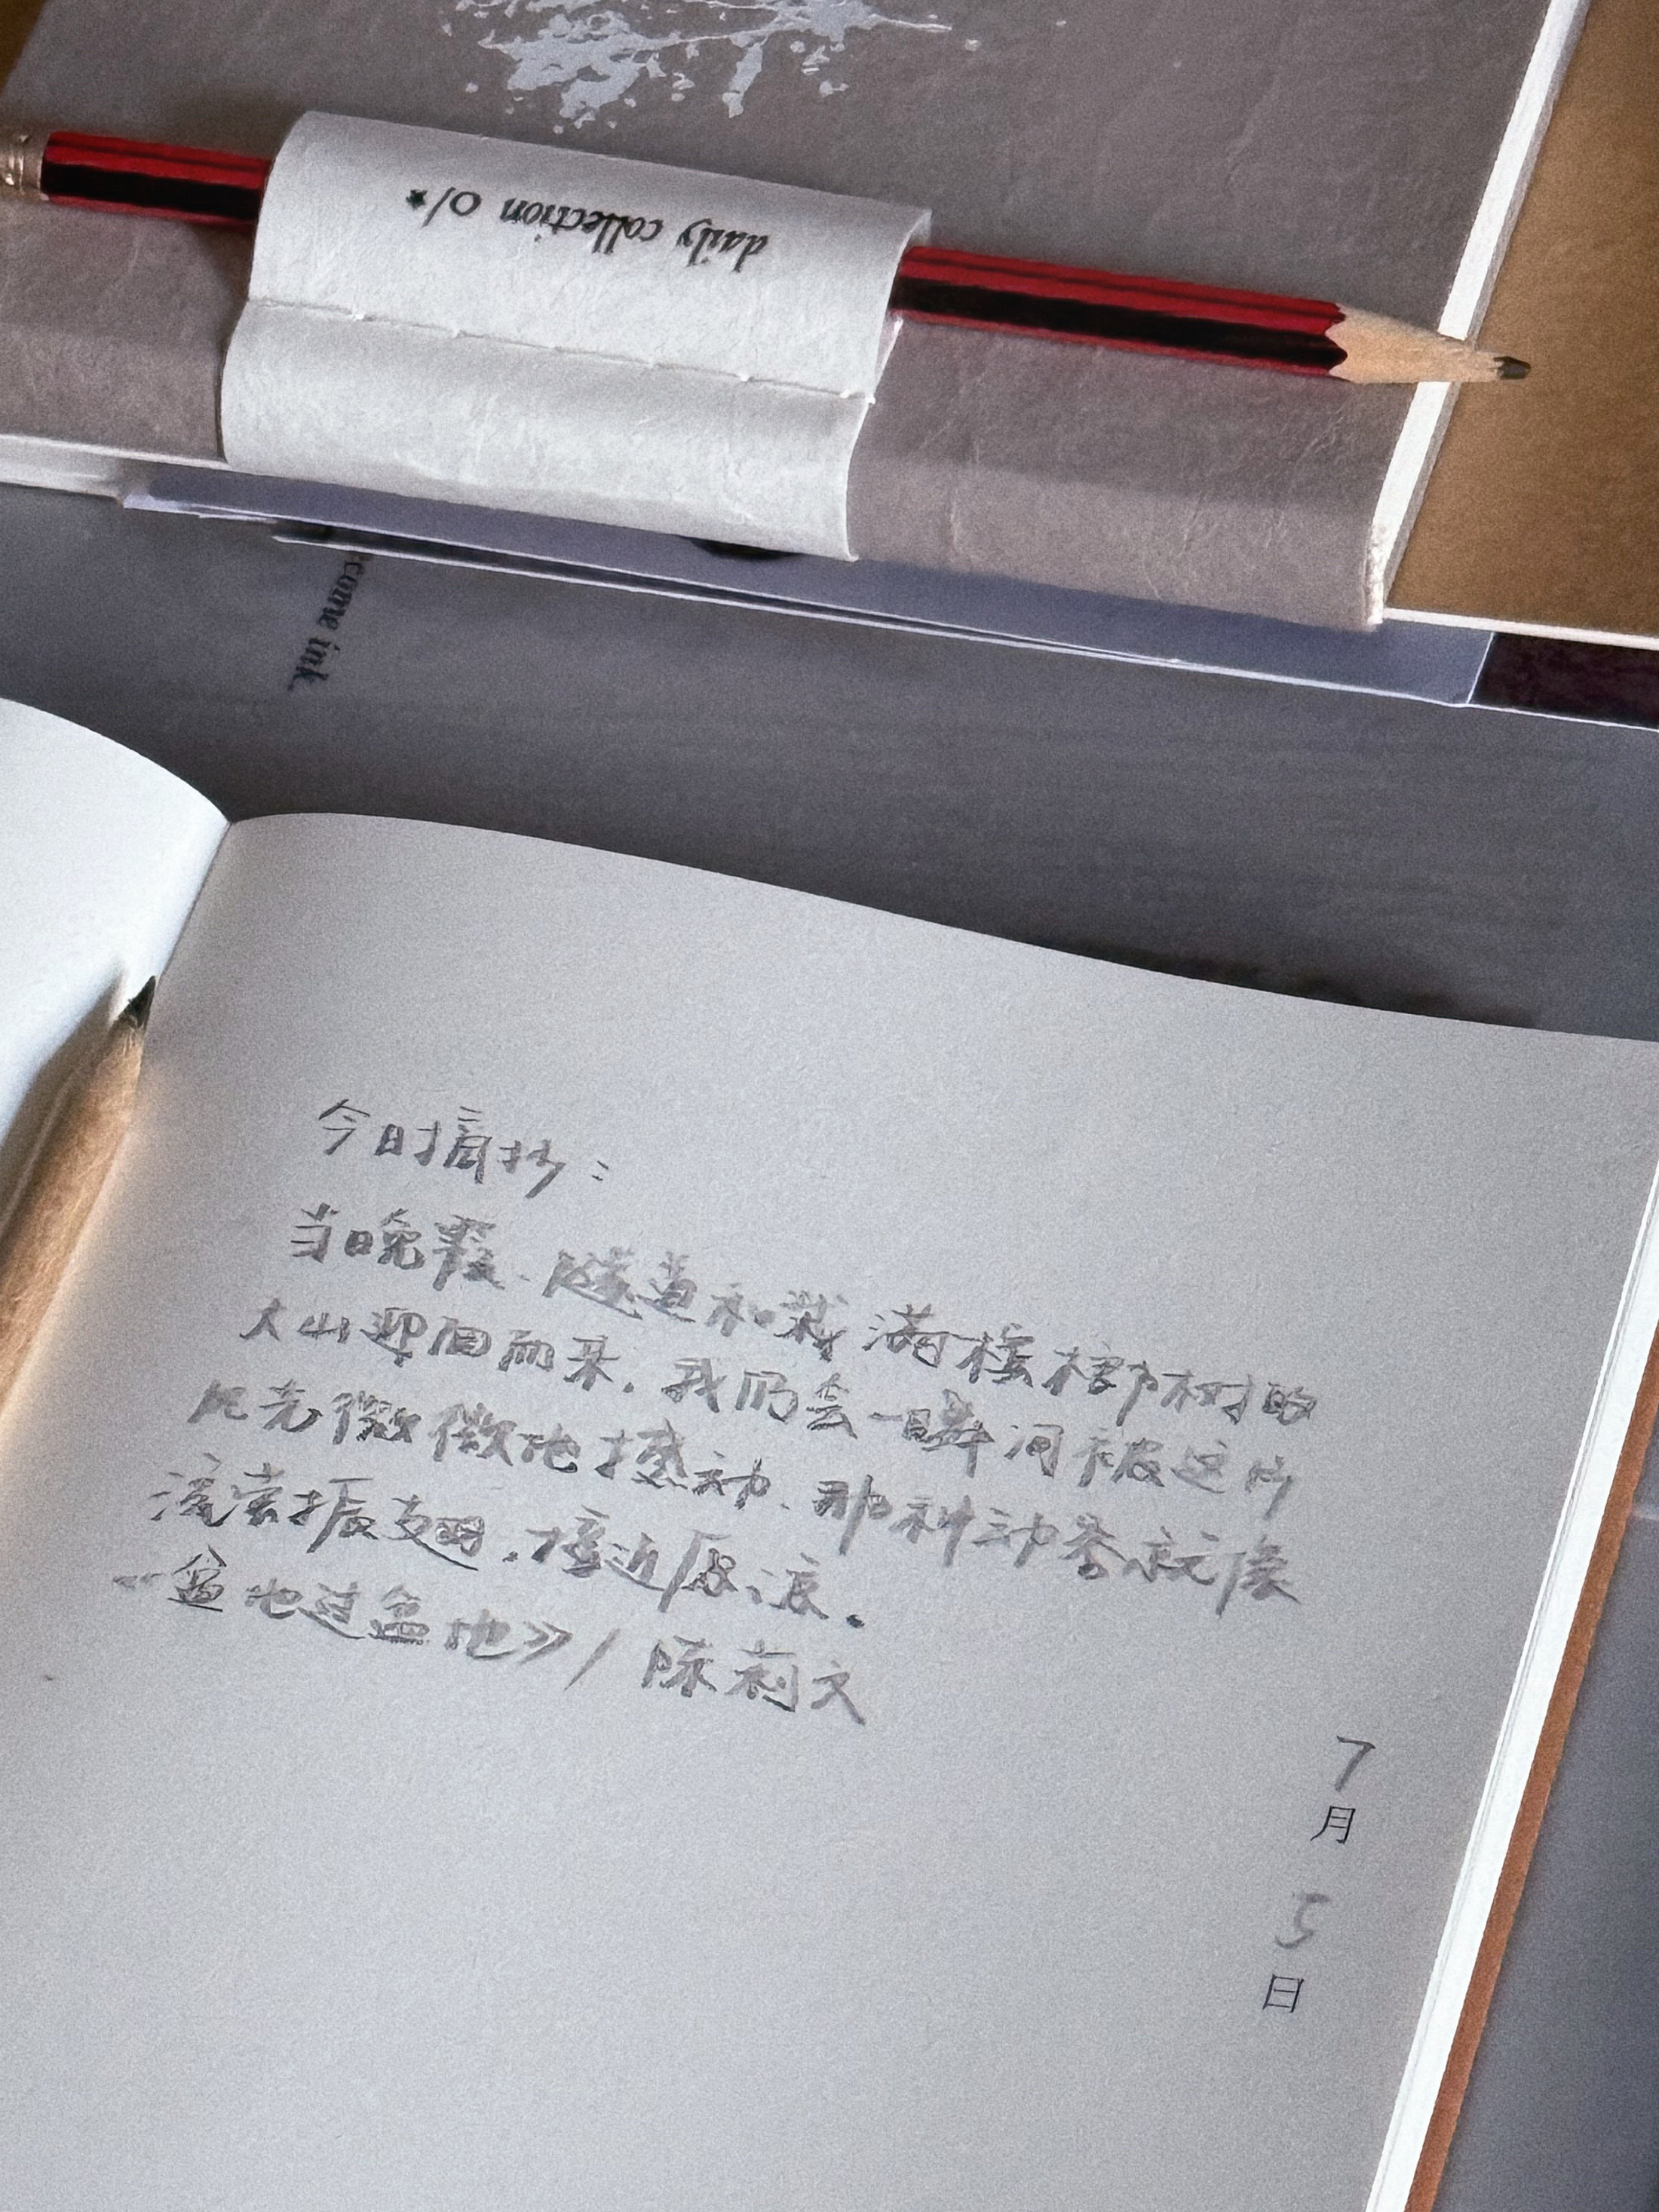 daily collection 0/*
come ink.
今日摘抄:
当晚霞、隧道和栽满槟榔树的
大山迎面而来,我们会一瞬间被这片
风光微微地撼动、那种动容就像
振翅,接近
盆地过盆地》/ 陈莉文
7
月
5
日